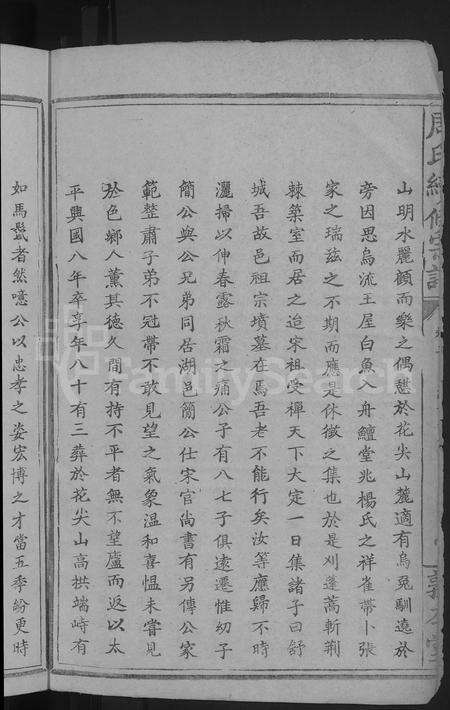 周氏續修宗譜
山明水麗顧而樂之偶憇於花尖山麓適有烏兔馴遶於
旁因思烏流王屋白魚入舟鱣堂兆楊氏之祥雀帶卜張
家之瑞兹之不期而應是休徵之集也於是刈蓬蒿斬荆
棘築室而居之迨宋祖受禪天下大定一日集諸子曰舒
城吾故邑祖宗墳墓在焉吾老不能行矣汝等應歸不時
灑掃以伸春露秋霜之痛公子有八七子俱遠遷惟幼子
簡公與公兄弟同居湖邑簡公仕宋官尚書有另傳公家
範整肅子弟不冠帶不敢見望之氣象温和喜愠未嘗見
於色鄉人薰其德久間有持不平者無不望廬而返以太
平興國八年卒享年八十有三葬於花尖山高拱端峙有
如馬鬛者然噫公以忠孝之姿宏博之才當五季紛更時
FamilySearch